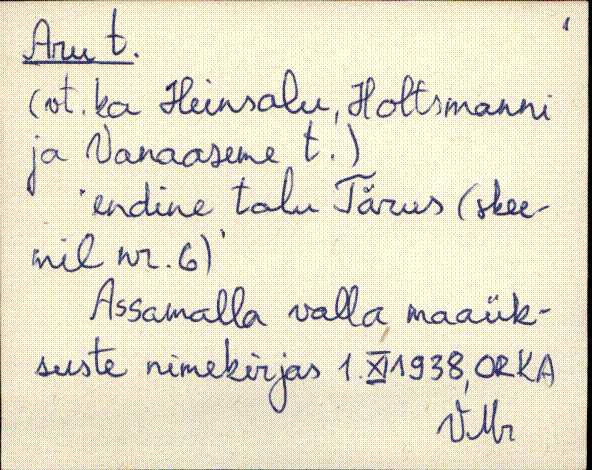 1
Aru t.
(vt. ka Heinsalu, Holtsmanni
ja Vanaaseme t.)
'endine talu Tärus (skee-
mil nr. 6)'
Assamalla valla maaük-
suste nimekirjas 1.XI 1938, ORKA
VMr